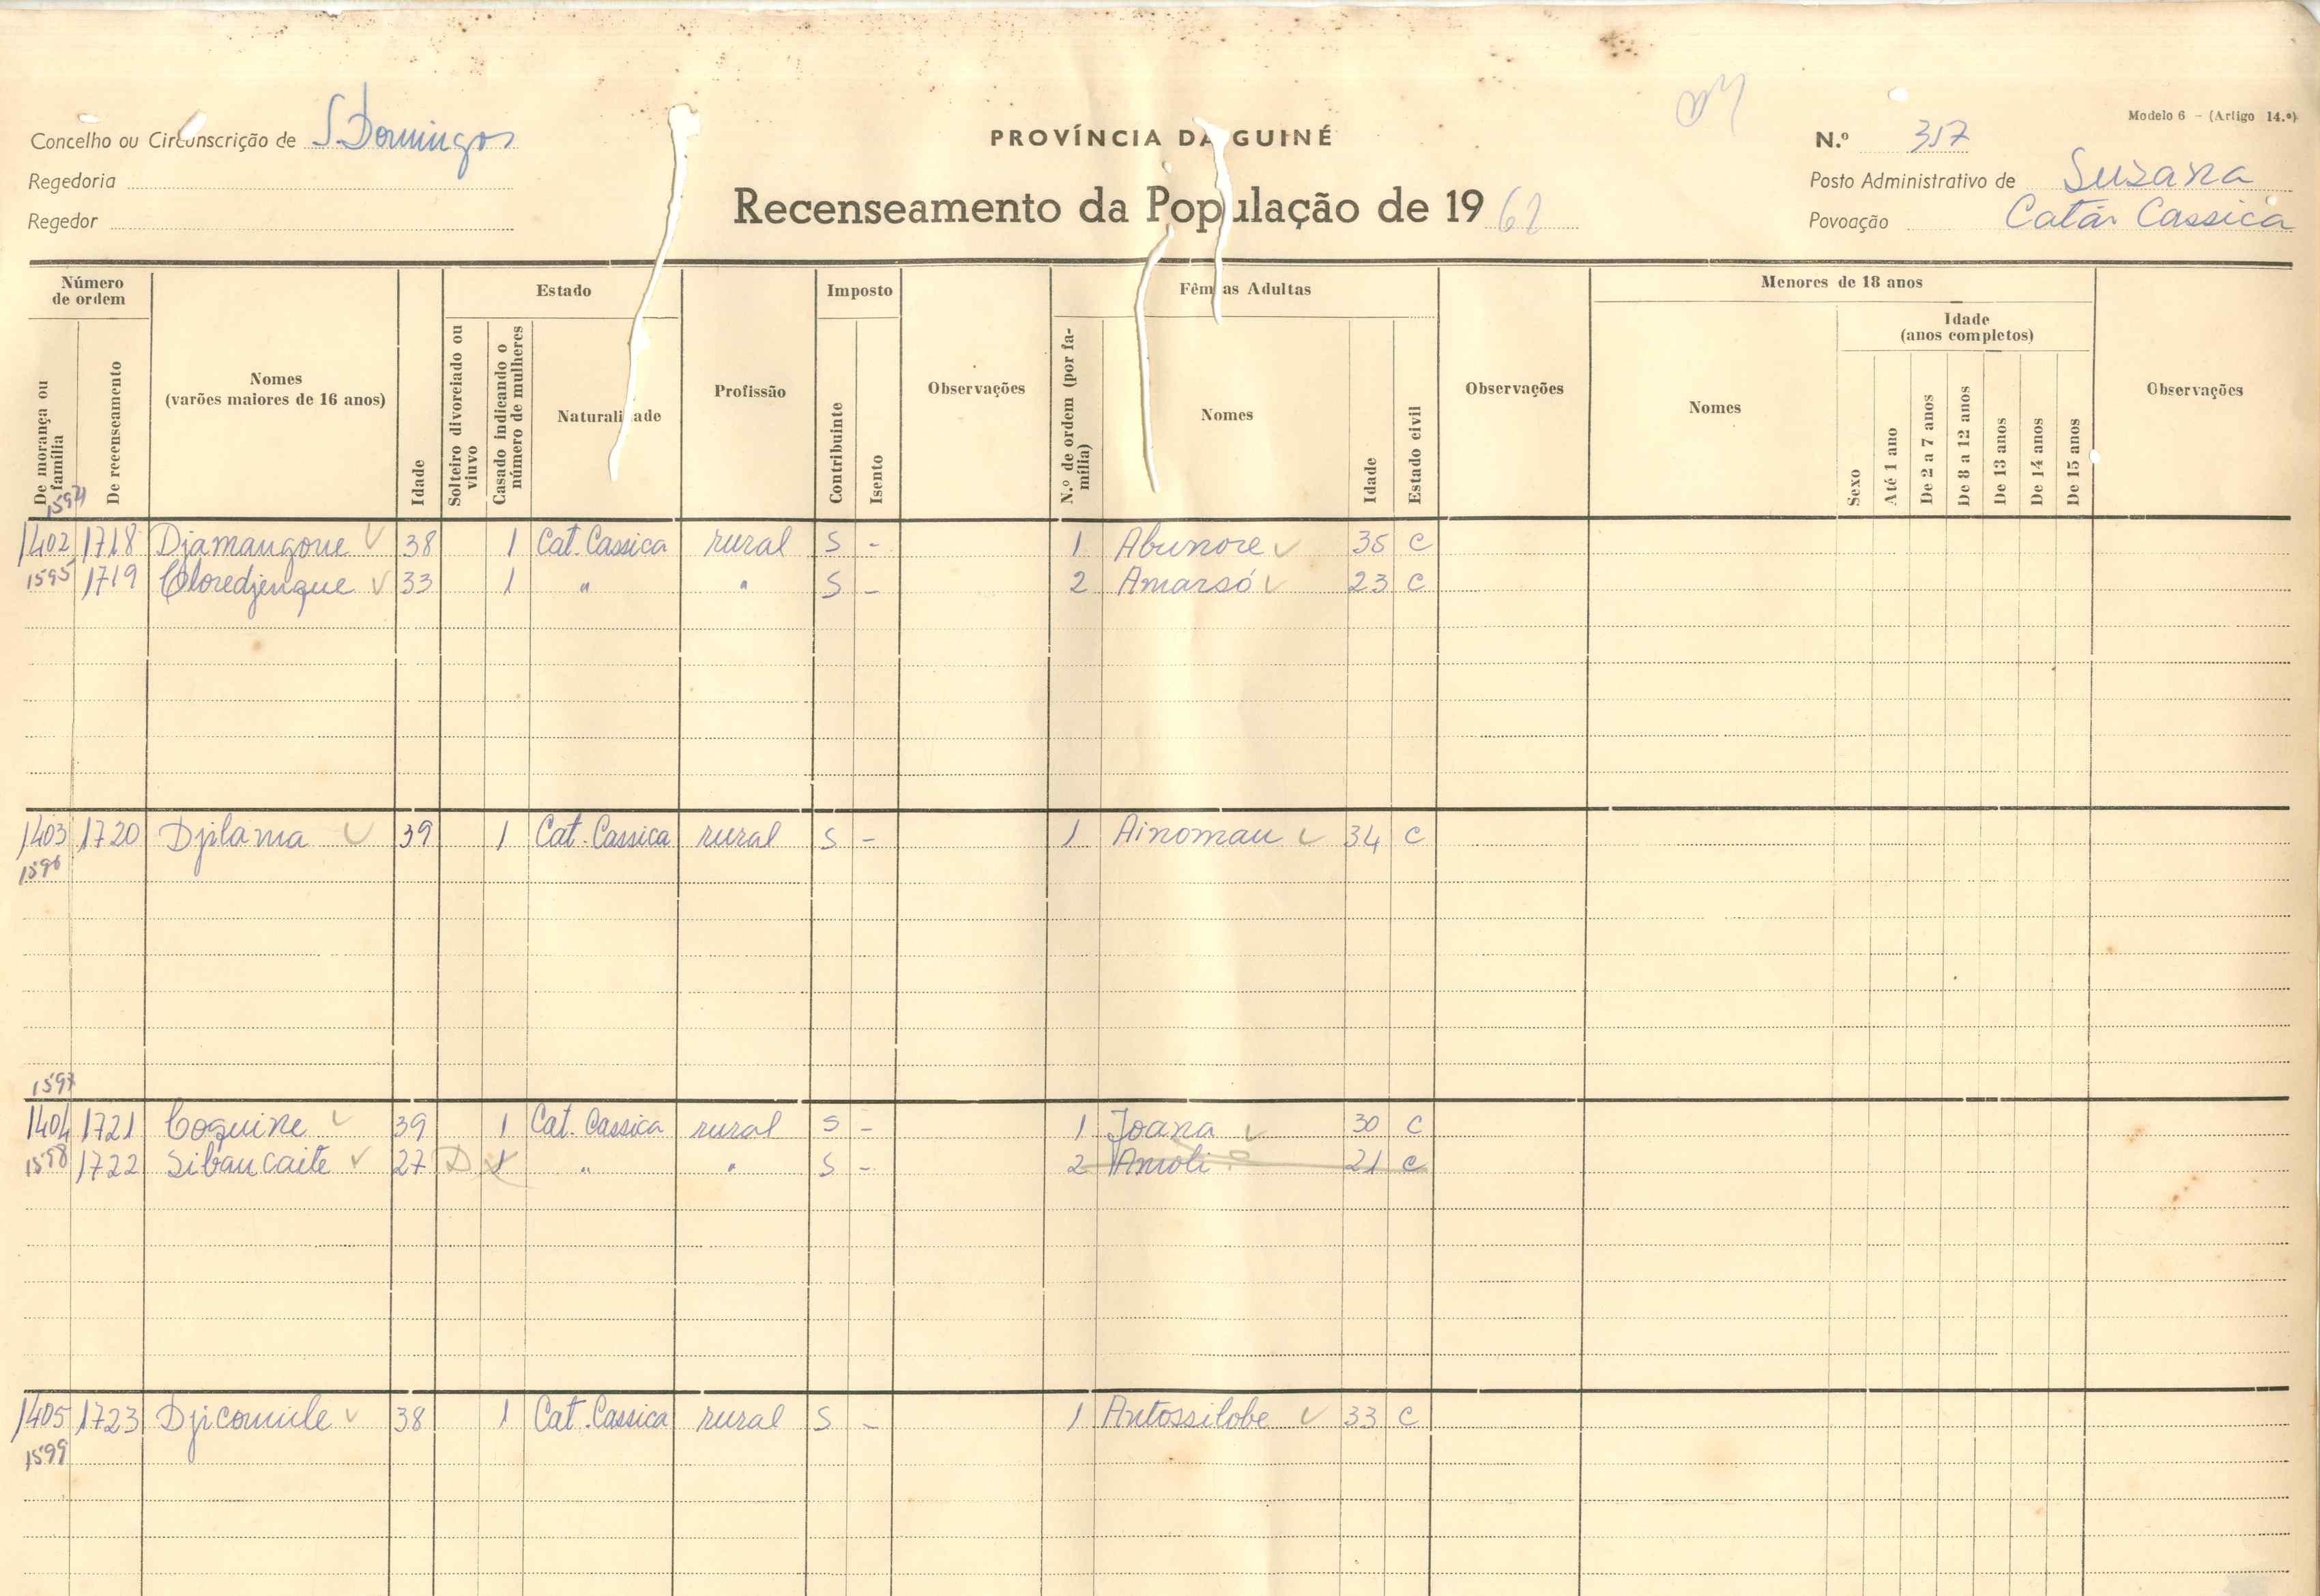 Modelo 6 - (Artigo 14.º)
Concelho ou Circunscrição de S. Domingos
PROVÍNCIA DA GUINÉ
N.º 317
Regedoria
Posto Administrativo de Suzana
Regedor
Recenseamento da População de 1962
Povoação Catár Cassica
Número de ordem
De morança ou família
De recenseamento
Nomes (varões maiores de 16 anos)
Idade
Estado
Solteiro divorciado ou viuvo
Casado indicando o número de mulheres
Naturalidade
Profissão
Imposto
Contribuinte
Isento
Observações
Fêmeas Adultas
N.º de ordem (por família)
Nomes
Idade
Estado civil
Observações
Menores de 18 anos
Nomes
Sexo
Idade (anos completos)
Até 1 ano
De 2 a 7 anos
De 8 a 12 anos
De 13 anos
De 14 anos
De 15 anos
Observações
1594
1402 1718 Djamangone 38 1 Cat. Cassica rural S - 1 Abunore 35 C
1595 1719 33 1 " " S - 2 Amarsó 23 C
1403 1720 Djilama 39 1 Cat. Cassica rural S - 1 Ainomau 34 C
1596
1597
1404 1721 Coquine 39 1 Cat. Cassica rural S - 1 Joana 30 C
1598 1722 Sibaucaite 27 D 1 " " S - 2 Amoli 21 C
1405 1723 Djicomule 38 1 Cat. Cassica rural S - 1 Antossilobe 33 C
1599